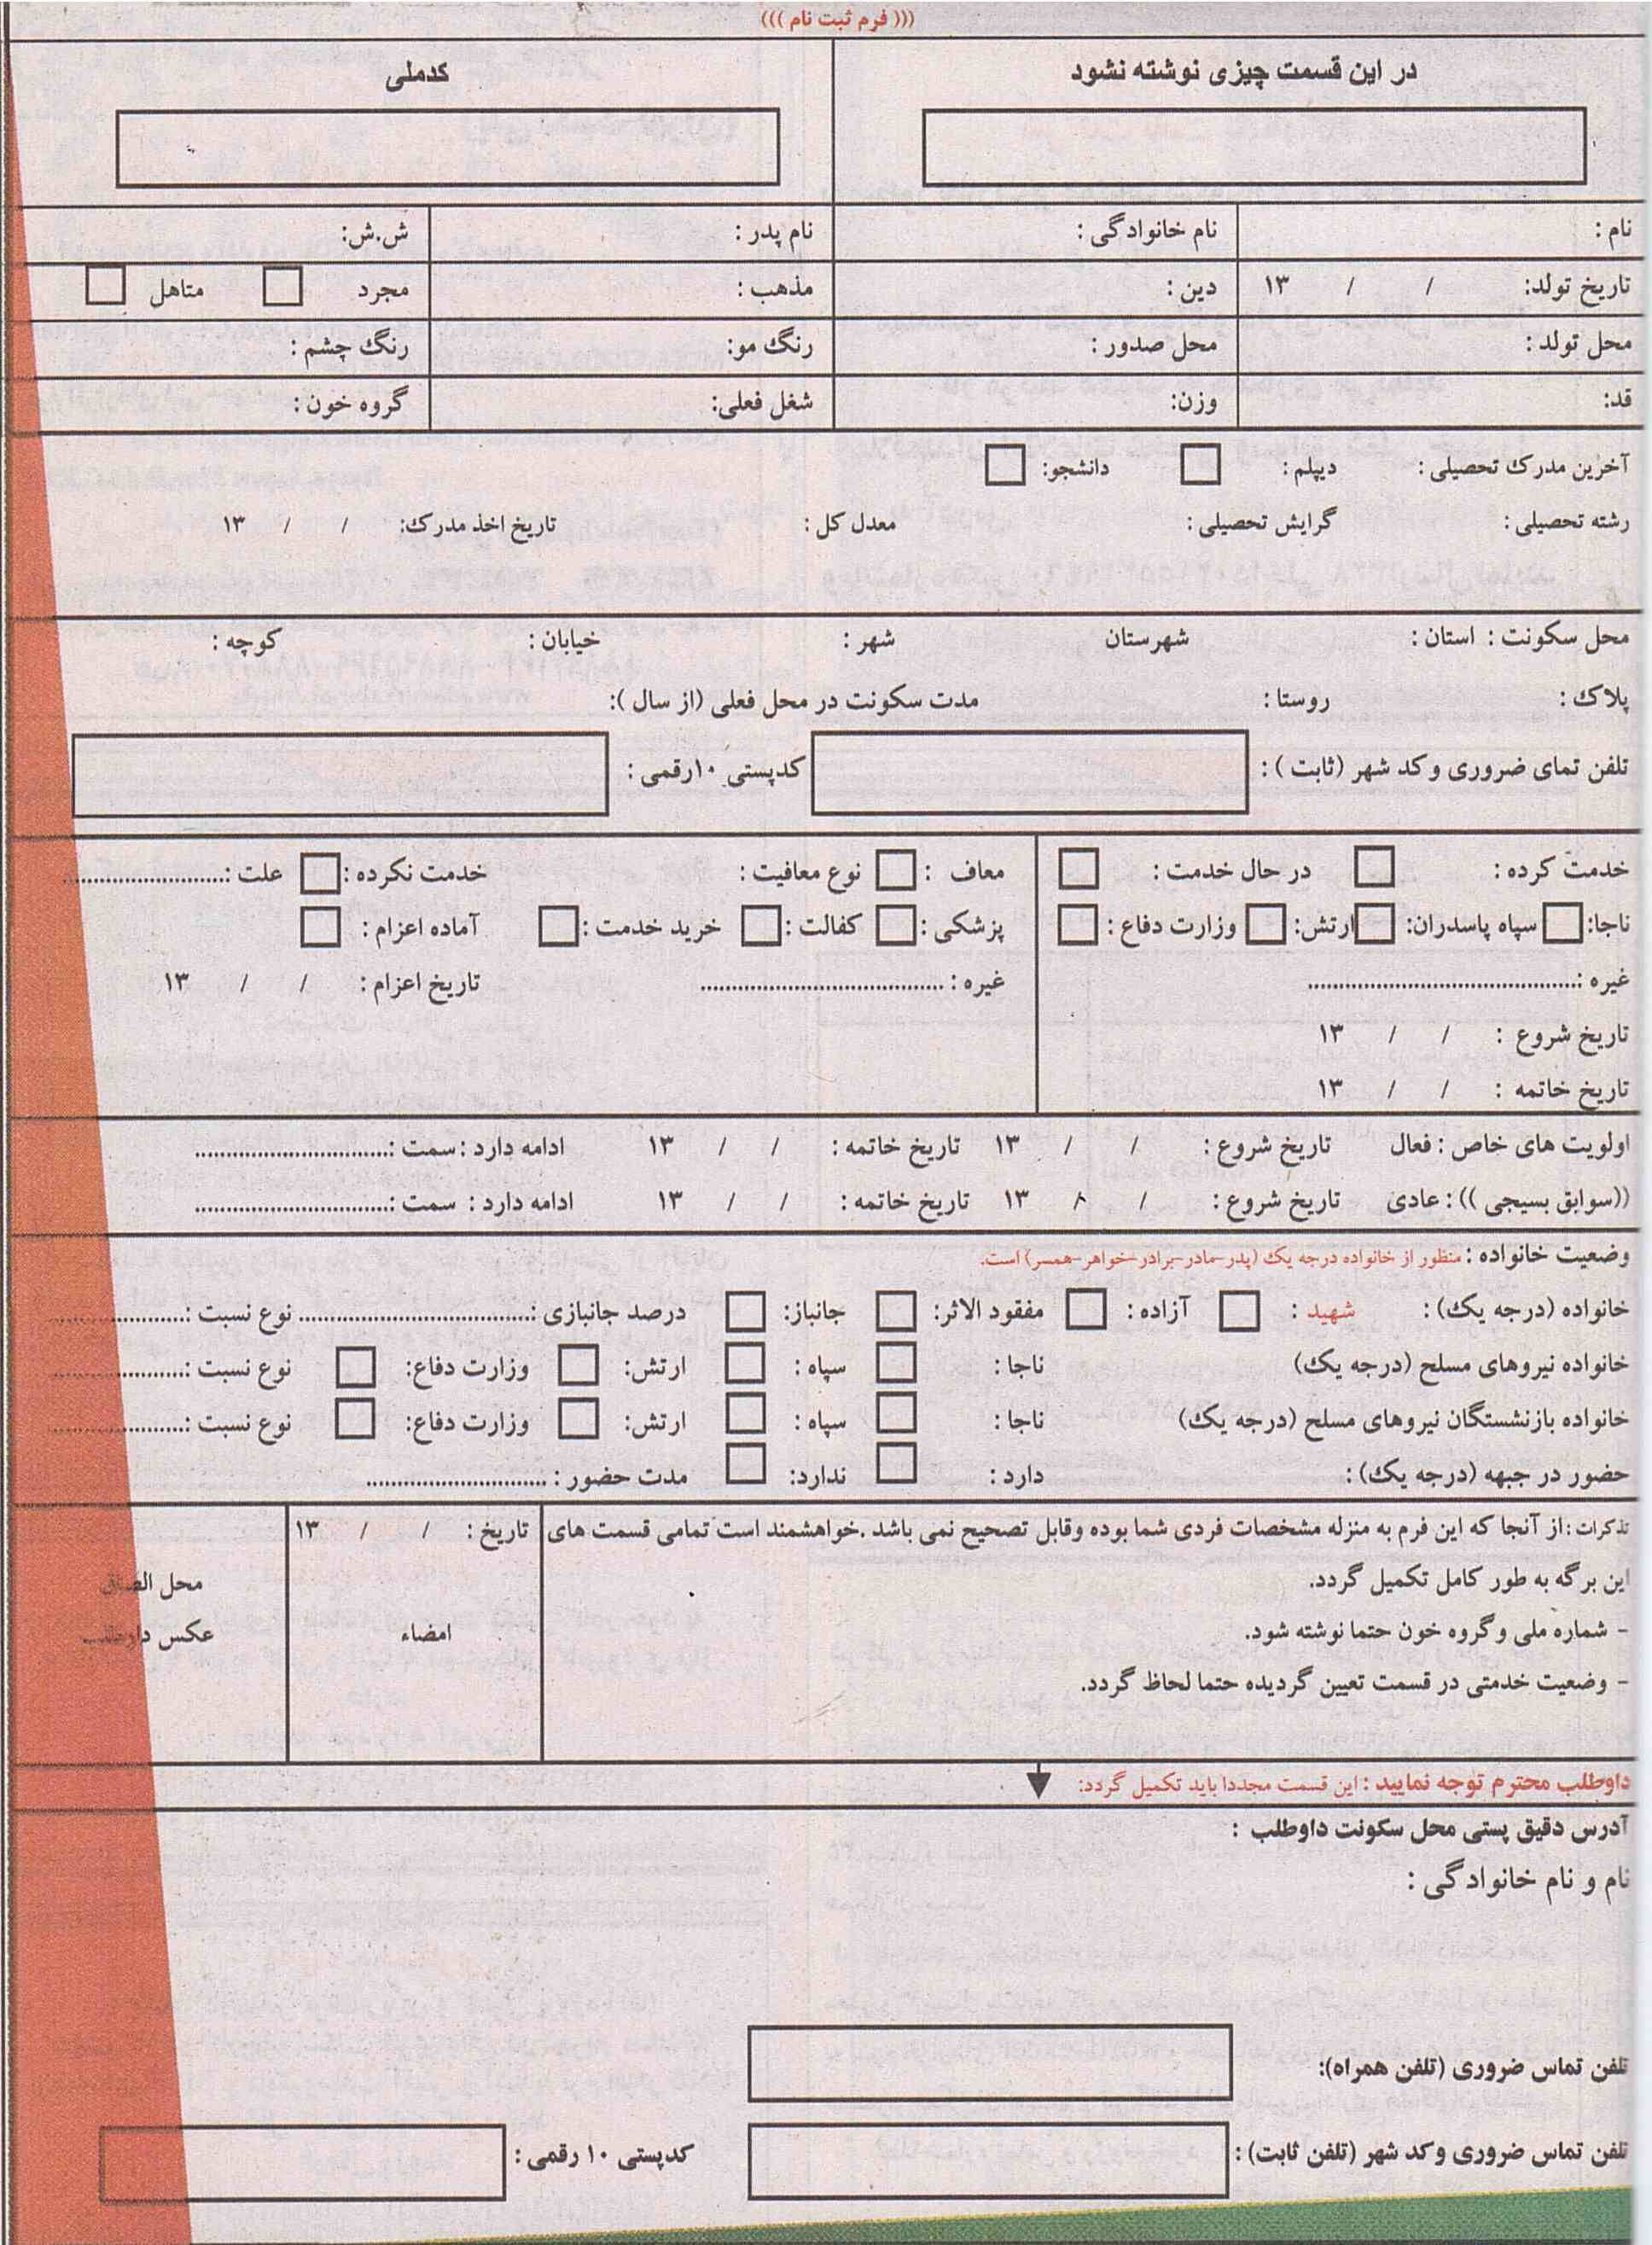 ((( فرم ثبت نام )))
در این قسمت چیزی نوشته نشود
کدملی
نام : نام خانوادگی : نام پدر : ش.ش:
تاریخ تولد: / / ۱۳ دین : مذهب : مجرد متاهل
محل تولد : محل صدور : رنگ مو: رنگ چشم :
قد: وزن: شغل فعلی: گروه خون :
آخرین مدرک تحصیلی : دیپلم : دانشجو:
رشته تحصیلی : گرایش تحصیلی : معدل کل : تاریخ اخذ مدرک: / / ۱۳
محل سکونت : استان : شهرستان شهر : خیابان : کوچه :
پلاک : روستا : مدت سکونت در محل فعلی (از سال ):
تلفن تمای ضروری وکد شهر (ثابت ) : کدپستی ۱۰رقمی :
خدمت کرده : در حال خدمت : معاف : نوع معافیت : خدمت نکرده : علت :...........................
ناجا: سپاه پاسدران: ارتش: وزارت دفاع : پزشکی : کفالت : خرید خدمت : آماده اعزام :
غیره :............................................ غیره : ........................................ تاریخ اعزام : / / ۱۳
تاریخ شروع : / / ۱۳
تاریخ خاتمه : / / ۱۳
اولویت های خاص : فعال تاریخ شروع : / / ۱۳ تاریخ خاتمه : / / ۱۳ ادامه دارد : سمت :................................
((سوابق بسیجی )) : عادی تاریخ شروع : / / ۱۳ تاریخ خاتمه : / / ۱۳ ادامه دارد : سمت :................................
وضعیت خانواده : منظور از خانواده درجه یک (پدر-مادر-برادر-خواهر-همسر) است.
خانواده (درجه یک) : شهید : آزاده : مفقود الاثر: جانباز: درصد جانبازی :....................................... نوع نسبت :......................
خانواده نیروهای مسلح (درجه یک) ناجا : سپاه : ارتش: وزارت دفاع: نوع نسبت :......................
خانواده بازنشستگان نیروهای مسلح (درجه یک) ناجا : سپاه : ارتش: وزارت دفاع: نوع نسبت :......................
حضور در جبهه (درجه یک) : دارد : ندارد: مدت حضور : ..............................
تذکرات : از آنجا که این فرم به منزله مشخصات فردی شما بوده وقابل تصحیح نمی باشد .خواهشمند است تمامی قسمت های
این برگه به طور کامل تکمیل گردد.
- شماره ملی و گروه خون حتما نوشته شود.
- وضعیت خدمتی در قسمت تعیین گردیده حتما لحاظ گردد.
تاریخ : / / ۱۳
امضاء
محل الصاق
عکس داوطلب
داوطلب محترم توجه نمایید : این قسمت مجددا باید تکمیل گردد:
آدرس دقیق پستی محل سکونت داوطلب :
نام و نام خانوادگی :
تلفن تماس ضروری (تلفن همراه):
تلفن تماس ضروری وکد شهر (تلفن ثابت) : کدپستی ۱۰ رقمی :